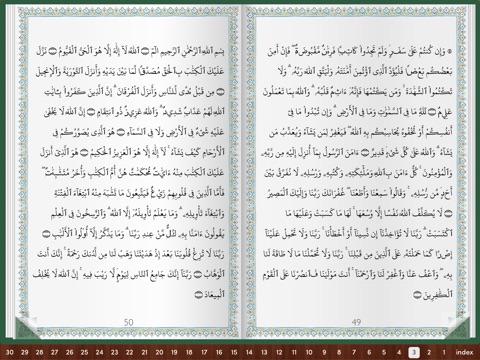 ۞ وَإِن كُنتُمْ عَلَىٰ سَفَرٍ وَلَمْ تَجِدُوا۟ كَاتِبًا فَرِهَٰنٌ مَّقْبُوضَةٌ ۖ فَإِنْ أَمِنَ
بَعْضُكُم بَعْضًا فَلْيُؤَدِّ ٱلَّذِى ٱؤْتُمِنَ أَمَٰنَتَهُۥ وَلْيَتَّقِ ٱللَّهَ رَبَّهُۥ ۗ وَلَا
تَكْتُمُوا۟ ٱلشَّهَٰدَةَ ۚ وَمَن يَكْتُمْهَا فَإِنَّهُۥٓ ءَاثِمٌ قَلْبُهُۥ ۗ وَٱللَّهُ بِمَا تَعْمَلُونَ
عَلِيمٌ ۝ لِّلَّهِ مَا فِى ٱلسَّمَٰوَٰتِ وَمَا فِى ٱلْأَرْضِ ۗ وَإِن تُبْدُوا۟ مَا فِىٓ
أَنفُسِكُمْ أَوْ تُخْفُوهُ يُحَاسِبْكُم بِهِ ٱللَّهُ ۖ فَيَغْفِرُ لِمَن يَشَآءُ وَيُعَذِّبُ مَن
يَشَآءُ ۗ وَٱللَّهُ عَلَىٰ كُلِّ شَىْءٍ قَدِيرٌ ۝ ءَامَنَ ٱلرَّسُولُ بِمَآ أُنزِلَ إِلَيْهِ مِن رَّبِّهِۦ
وَٱلْمُؤْمِنُونَ ۚ كُلٌّ ءَامَنَ بِٱللَّهِ وَمَلَٰٓئِكَتِهِۦ وَكُتُبِهِۦ وَرُسُلِهِۦ لَا نُفَرِّقُ بَيْنَ
أَحَدٍ مِّن رُّسُلِهِۦ ۚ وَقَالُوا۟ سَمِعْنَا وَأَطَعْنَا ۖ غُفْرَانَكَ رَبَّنَا وَإِلَيْكَ ٱلْمَصِيرُ
۝ لَا يُكَلِّفُ ٱللَّهُ نَفْسًا إِلَّا وُسْعَهَا ۚ لَهَا مَا كَسَبَتْ وَعَلَيْهَا مَا
ٱكْتَسَبَتْ ۗ رَبَّنَا لَا تُؤَاخِذْنَآ إِن نَّسِينَآ أَوْ أَخْطَأْنَا ۚ رَبَّنَا وَلَا تَحْمِلْ عَلَيْنَآ
إِصْرًا كَمَا حَمَلْتَهُۥ عَلَى ٱلَّذِينَ مِن قَبْلِنَا ۚ رَبَّنَا وَلَا تُحَمِّلْنَا مَا لَا طَاقَةَ لَنَا
بِهِۦ ۖ وَٱعْفُ عَنَّا وَٱغْفِرْ لَنَا وَٱرْحَمْنَآ ۚ أَنتَ مَوْلَىٰنَا فَٱنصُرْنَا عَلَى ٱلْقَوْمِ
ٱلْكَٰفِرِينَ ۝
49
بِسْمِ ٱللَّهِ ٱلرَّحْمَٰنِ ٱلرَّحِيمِ الٓمٓ ۝ ٱللَّهُ لَآ إِلَٰهَ إِلَّا هُوَ ٱلْحَىُّ ٱلْقَيُّومُ ۝ نَزَّلَ
عَلَيْكَ ٱلْكِتَٰبَ بِٱلْحَقِّ مُصَدِّقًا لِّمَا بَيْنَ يَدَيْهِ وَأَنزَلَ ٱلتَّوْرَىٰةَ وَٱلْإِنجِيلَ
۝ مِن قَبْلُ هُدًى لِّلنَّاسِ وَأَنزَلَ ٱلْفُرْقَانَ ۗ إِنَّ ٱلَّذِينَ كَفَرُوا۟ بِـَٔايَٰتِ
ٱللَّهِ لَهُمْ عَذَابٌ شَدِيدٌ ۗ وَٱللَّهُ عَزِيزٌ ذُو ٱنتِقَامٍ ۝ إِنَّ ٱللَّهَ لَا يَخْفَىٰ
عَلَيْهِ شَىْءٌ فِى ٱلْأَرْضِ وَلَا فِى ٱلسَّمَآءِ ۝ هُوَ ٱلَّذِى يُصَوِّرُكُمْ فِى
ٱلْأَرْحَامِ كَيْفَ يَشَآءُ ۚ لَآ إِلَٰهَ إِلَّا هُوَ ٱلْعَزِيزُ ٱلْحَكِيمُ ۝ هُوَ ٱلَّذِىٓ أَنزَلَ
عَلَيْكَ ٱلْكِتَٰبَ مِنْهُ ءَايَٰتٌ مُّحْكَمَٰتٌ هُنَّ أُمُّ ٱلْكِتَٰبِ وَأُخَرُ مُتَشَٰبِهَٰتٌ ۖ
فَأَمَّا ٱلَّذِينَ فِى قُلُوبِهِمْ زَيْغٌ فَيَتَّبِعُونَ مَا تَشَٰبَهَ مِنْهُ ٱبْتِغَآءَ ٱلْفِتْنَةِ
وَٱبْتِغَآءَ تَأْوِيلِهِۦ ۗ وَمَا يَعْلَمُ تَأْوِيلَهُۥٓ إِلَّا ٱللَّهُ ۗ وَٱلرَّٰسِخُونَ فِى ٱلْعِلْمِ
يَقُولُونَ ءَامَنَّا بِهِۦ كُلٌّ مِّنْ عِندِ رَبِّنَا ۗ وَمَا يَذَّكَّرُ إِلَّآ أُو۟لُوا۟ ٱلْأَلْبَٰبِ ۝
رَبَّنَا لَا تُزِغْ قُلُوبَنَا بَعْدَ إِذْ هَدَيْتَنَا وَهَبْ لَنَا مِن لَّدُنكَ رَحْمَةً ۚ إِنَّكَ أَنتَ
ٱلْوَهَّابُ ۝ رَبَّنَآ إِنَّكَ جَامِعُ ٱلنَّاسِ لِيَوْمٍ لَّا رَيْبَ فِيهِ ۚ إِنَّ ٱللَّهَ لَا يُخْلِفُ
ٱلْمِيعَادَ ۝
50
30 29 28 27 26 25 24 23 22 21 20 19 18 17 16 15 14 13 12 11 10 9 8 7 6 5 4 3 2 1 index